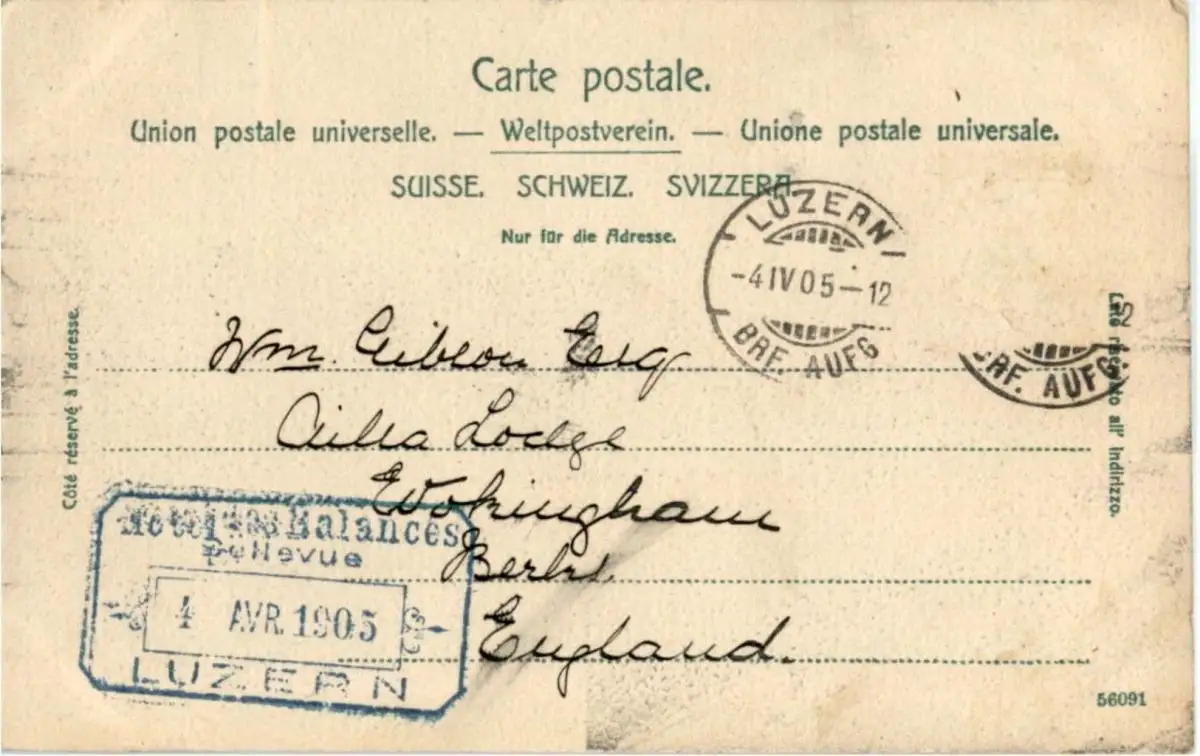 Carte postale.
Union postale universelle. — Weltpostverein. — Unione postale universale.
SUISSE. SCHWEIZ. SVIZZERA.
Nur für die Adresse.
LUZERN
-4 IV 05-12
BRF. AUFG
12
BRF. AUFG.
Côté réservé à l'adresse.
Lato riservato all' indirizzo.
Wm. Gibson Esq
Ailsa Lodge
Wokingham
Berks.
England.
Hotel des Balances
Bellevue
4 AVR. 1905
LUZERN
56091